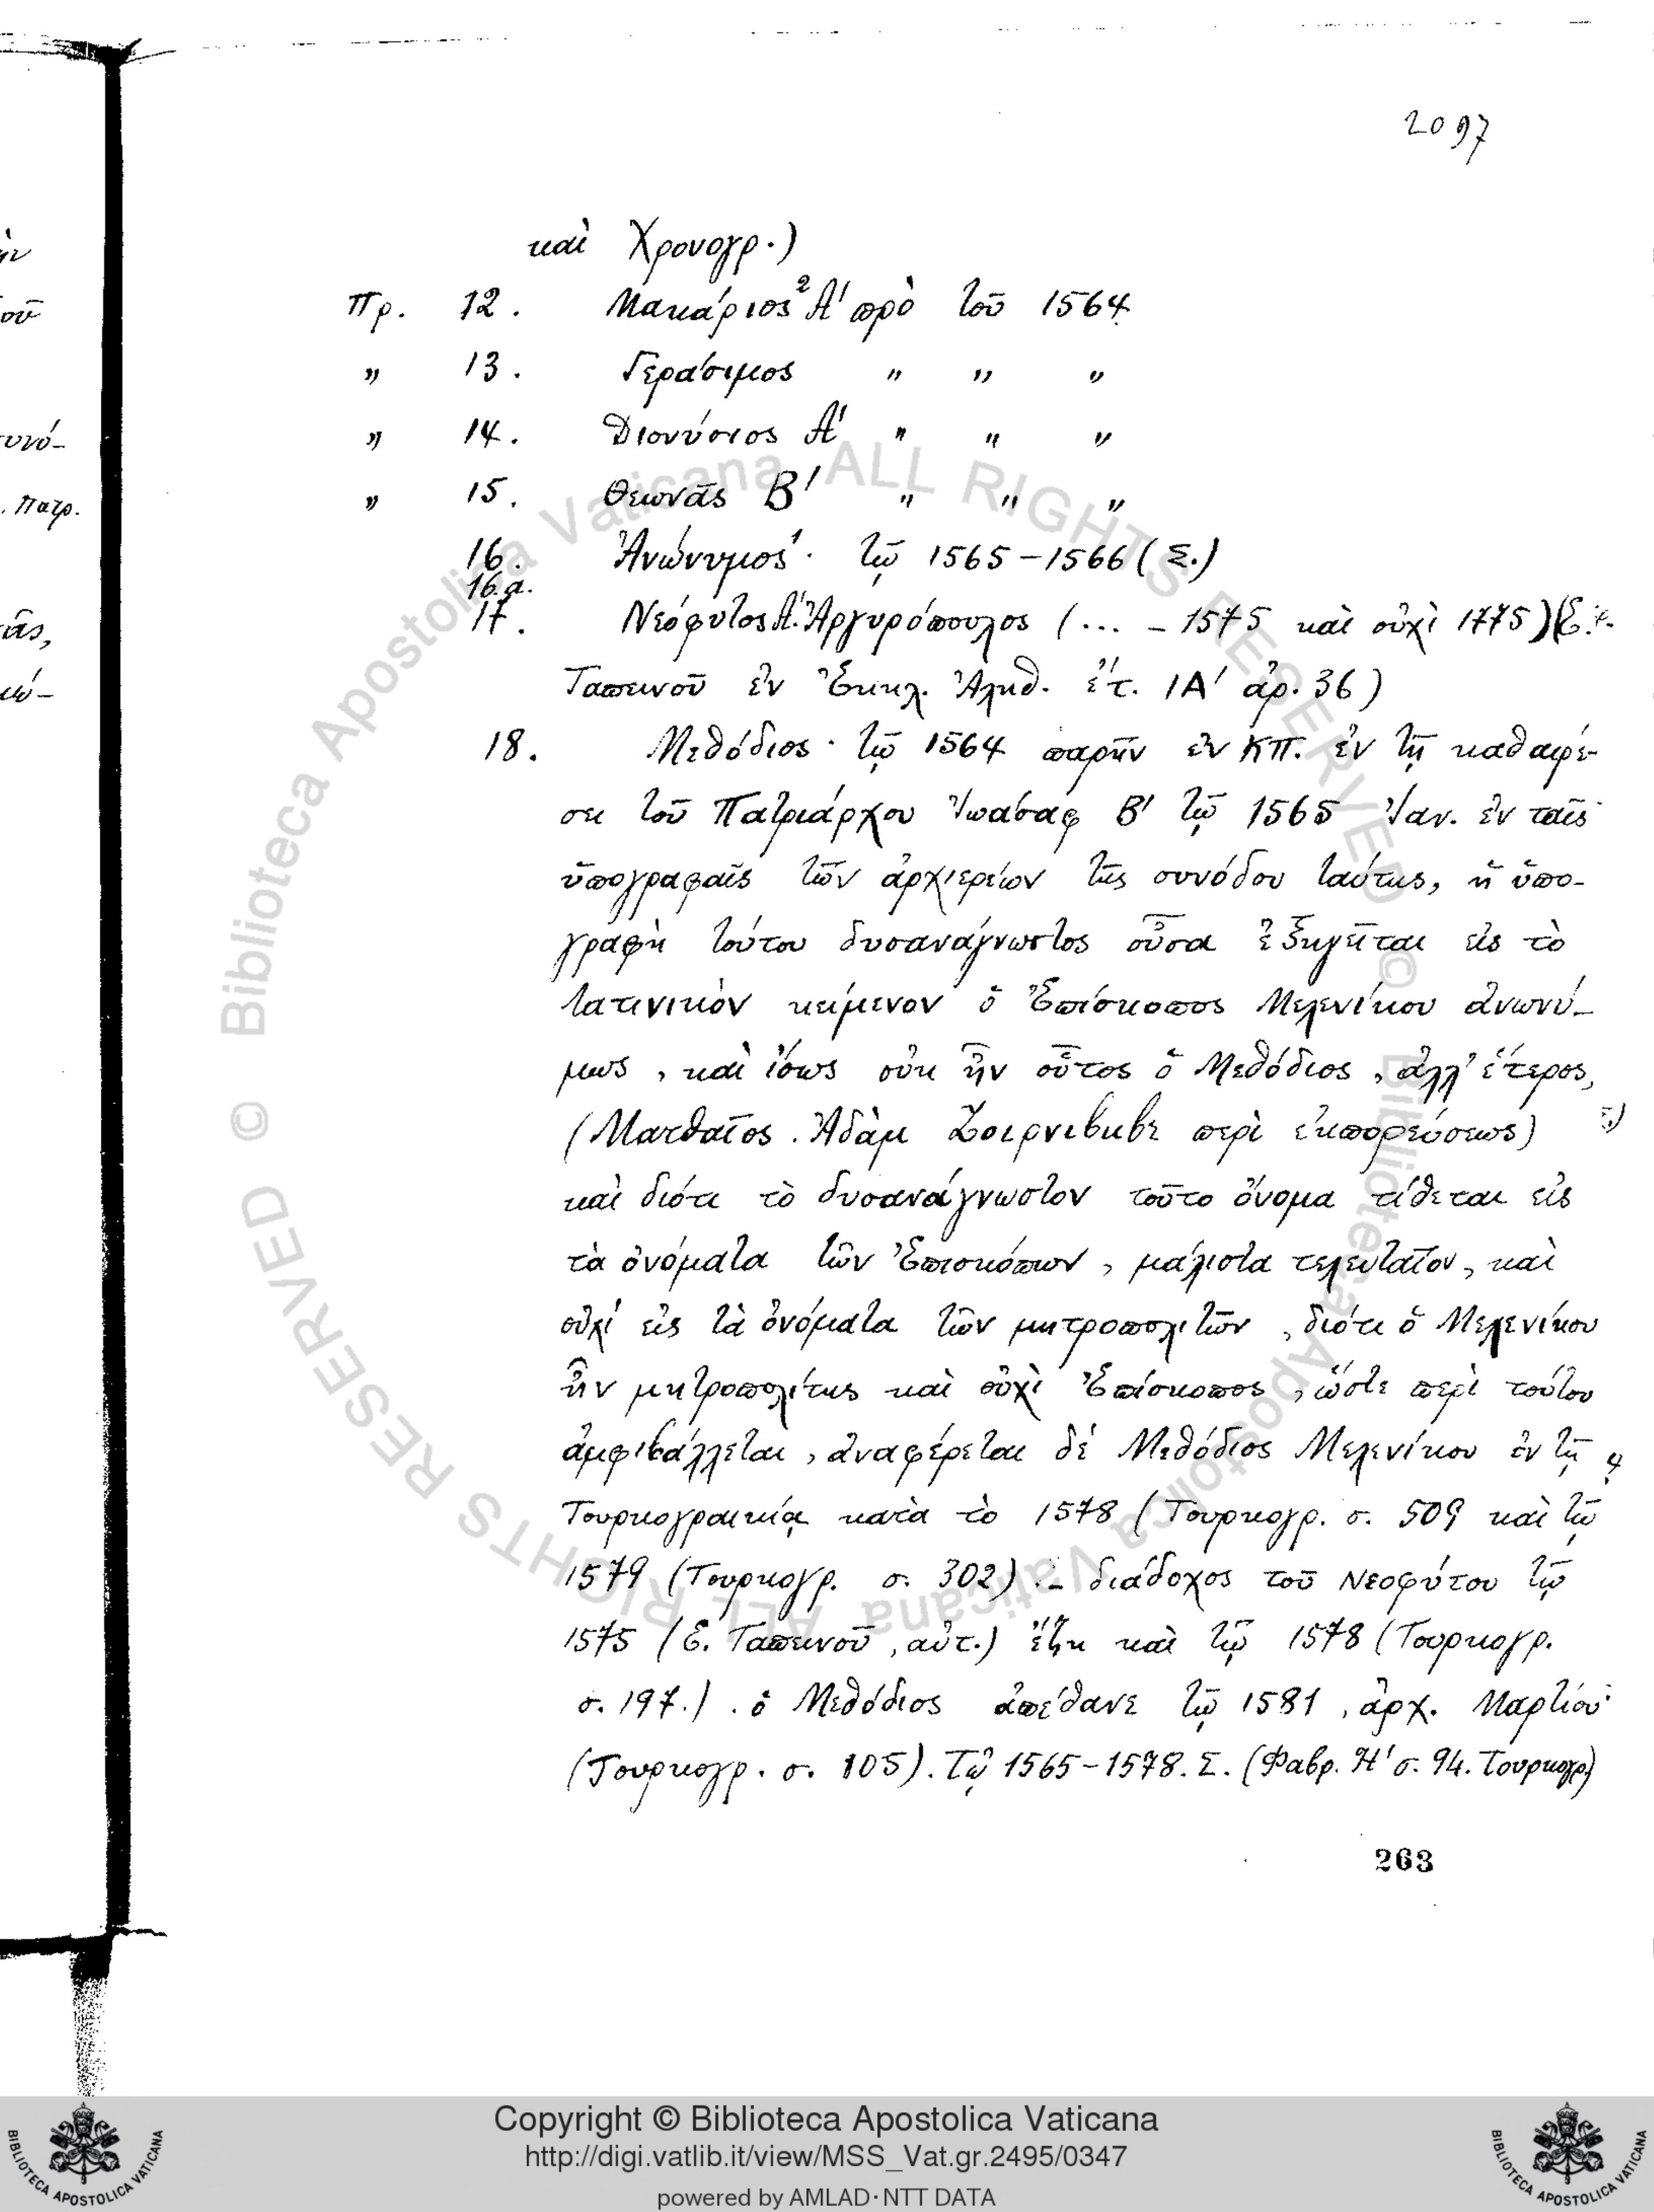 2097
καὶ Χρονογρ.)
Πρ. 12. Μακάριος² Α' πρὸ τοῦ 1564
„ 13. Γεράσιμος „ „ „
„ 14. Διονύσιος Α' „ „ „
„ 15. Θεωνᾶς Β' „ „ „
16. Ἀνώνυμος· τῷ 1565-1566 (Σ.)
16.α.
17. Νεόφυτος Α'. Ἀργυρόπουλος (... - 1575 καὶ οὐχὶ 1775) (Ε.
Ταπεινοῦ ἐν Ἐκκλ. Ἀληθ. ἔτ. ΙΑ' ἀρ. 36)
18. Μεθόδιος· τῷ 1564 παρῆν ἐν ΚΠ. ἐν τῇ καθαιρέ-
σει τοῦ Πατριάρχου Ἰωάσαφ Β' τῷ 1565 Ἰαν. ἐν ταῖς
ὑπογραφαῖς τῶν ἀρχιερέων τῆς συνόδου ταύτης, ἡ ὑπο-
γραφὴ τούτου δυσανάγνωστος οὖσα ἐξηγεῖται εἰς τὸ
λατινικὸν κείμενον ὁ Ἐπίσκοπος Μελενίκου ἀνωνύ-
μως, καὶ ἴσως οὐκ ἦν οὗτος ὁ Μεθόδιος, ἀλλ' ἕτερος,
(Ματθαῖος. Ἀδὰμ Ζοιρνικαβε περὶ ἐκπορεύσεως)
καὶ διότι τὸ δυσανάγνωστον τοῦτο ὄνομα τίθεται εἰς
τὰ ὀνόματα τῶν Ἐπισκόπων, μάλιστα τελευταῖον, καὶ
οὐχί εἰς τὰ ὀνόματα τῶν μητροπολιτῶν, διότι ὁ Μελενίκου
ἦν μητροπολίτης καὶ οὐχὶ Ἐπίσκοπος, ὥστε περὶ τούτου
ἀμφιβάλλεται, ἀναφέρεται δέ Μεθόδιος Μελενίκου ἐν τῇ
Τουρκογραικίᾳ κατὰ τὸ 1578 (Τουρκογρ. σ. 509 καὶ τῷ
1579 (Τουρκογρ. σ. 302) .- διάδοχος τοῦ Νεοφύτου τῷ
1575 (Ε. Ταπεινοῦ, αὐτ.) ἔζη καὶ τῷ 1578 (Τουρκογρ.
σ. 197.). ὁ Μεθόδιος ἀπέθανε τῷ 1581, ἀρχ. Μαρτίου·
(Τουρκογρ. σ. 105). Τῷ 1565-1578. Σ. (Φαβρ. Η' σ. 94. Τουρκογρ)
263
ὴν
οῦ
υνό-
. Πατρ.
ᾶς,
© Biblioteca Apostolica Vaticana ALL RIGHTS RESERVED © Biblioteca Apostolica Vaticana ALL RIGHTS RESERVED
Copyright © Biblioteca Apostolica Vaticana
http://digi.vatlib.it/view/MSS_Vat.gr.2495/0347
powered by AMLAD·NTT DATA
BIBLIOTECA APOSTOLICA VATICANA
BIBLIOTECA APOSTOLICA VATICANA